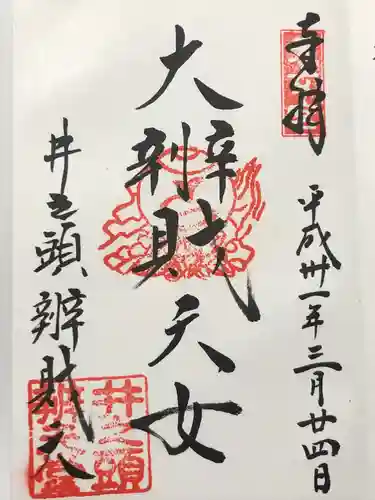 奉拝
平成卅一年三月廿四日
大辨財天女
井之頭辨財天
井之頭
辨財天